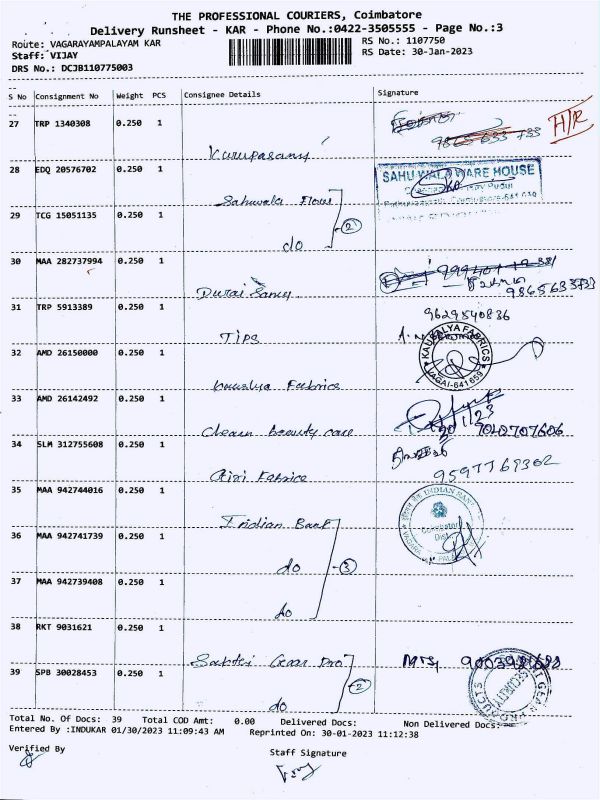 THE PROFESSIONAL COURIERS, Coimbatore
Delivery Runsheet - KAR - Phone No.:0422-3505555 - Page No.:3
Route: VAGARAYAMPALAYAM KAR
RS No.: 1107750
Staff: VIJAY
RS Date: 30-Jan-2023
DRS No.: DCJB110775003
S No Consignment No Weight PCS Consignee Details Signature
27 TRP 1340308 0.250 1
H/R
Karupasamy
28 EDQ 20576702 0.250 1
SAHUWALA WARE HOUSE
Sahuwala Flour
29 TCG 15051135 0.250 1
2
do
30 MAA 282737994 0.250 1
Durai Samy
9865633733
31 TRP 5913389 0.250 1
9629540836
Tips
32 AMD 26150000 0.250 1
KAUSALYA FABRICS
VAGAI-641 659
Kausalya Fabrics
33 AMD 26142492 0.250 1
Clean Beauty care
7012707606
34 SLM 312755608 0.250 1
Giri Fabrice
9597769302
35 MAA 942744016 0.250 1
INDIAN BANK
Coimbatore
Dist.
Indian Bank
36 MAA 942741739 0.250 1
do
3
37 MAA 942739408 0.250 1
do
38 RKT 9031621 0.250 1
Sakthi Gear Pro
39 SPB 30028453 0.250 1
SECURITY
GEAR PRODUCTS
2
do
Total No. Of Docs: 39 Total COD Amt: 0.00 Delivered Docs: Non Delivered Docs:
Entered By :INDUKAR 01/30/2023 11:09:43 AM Reprinted On: 30-01-2023 11:12:38
Verified By
Staff Signature